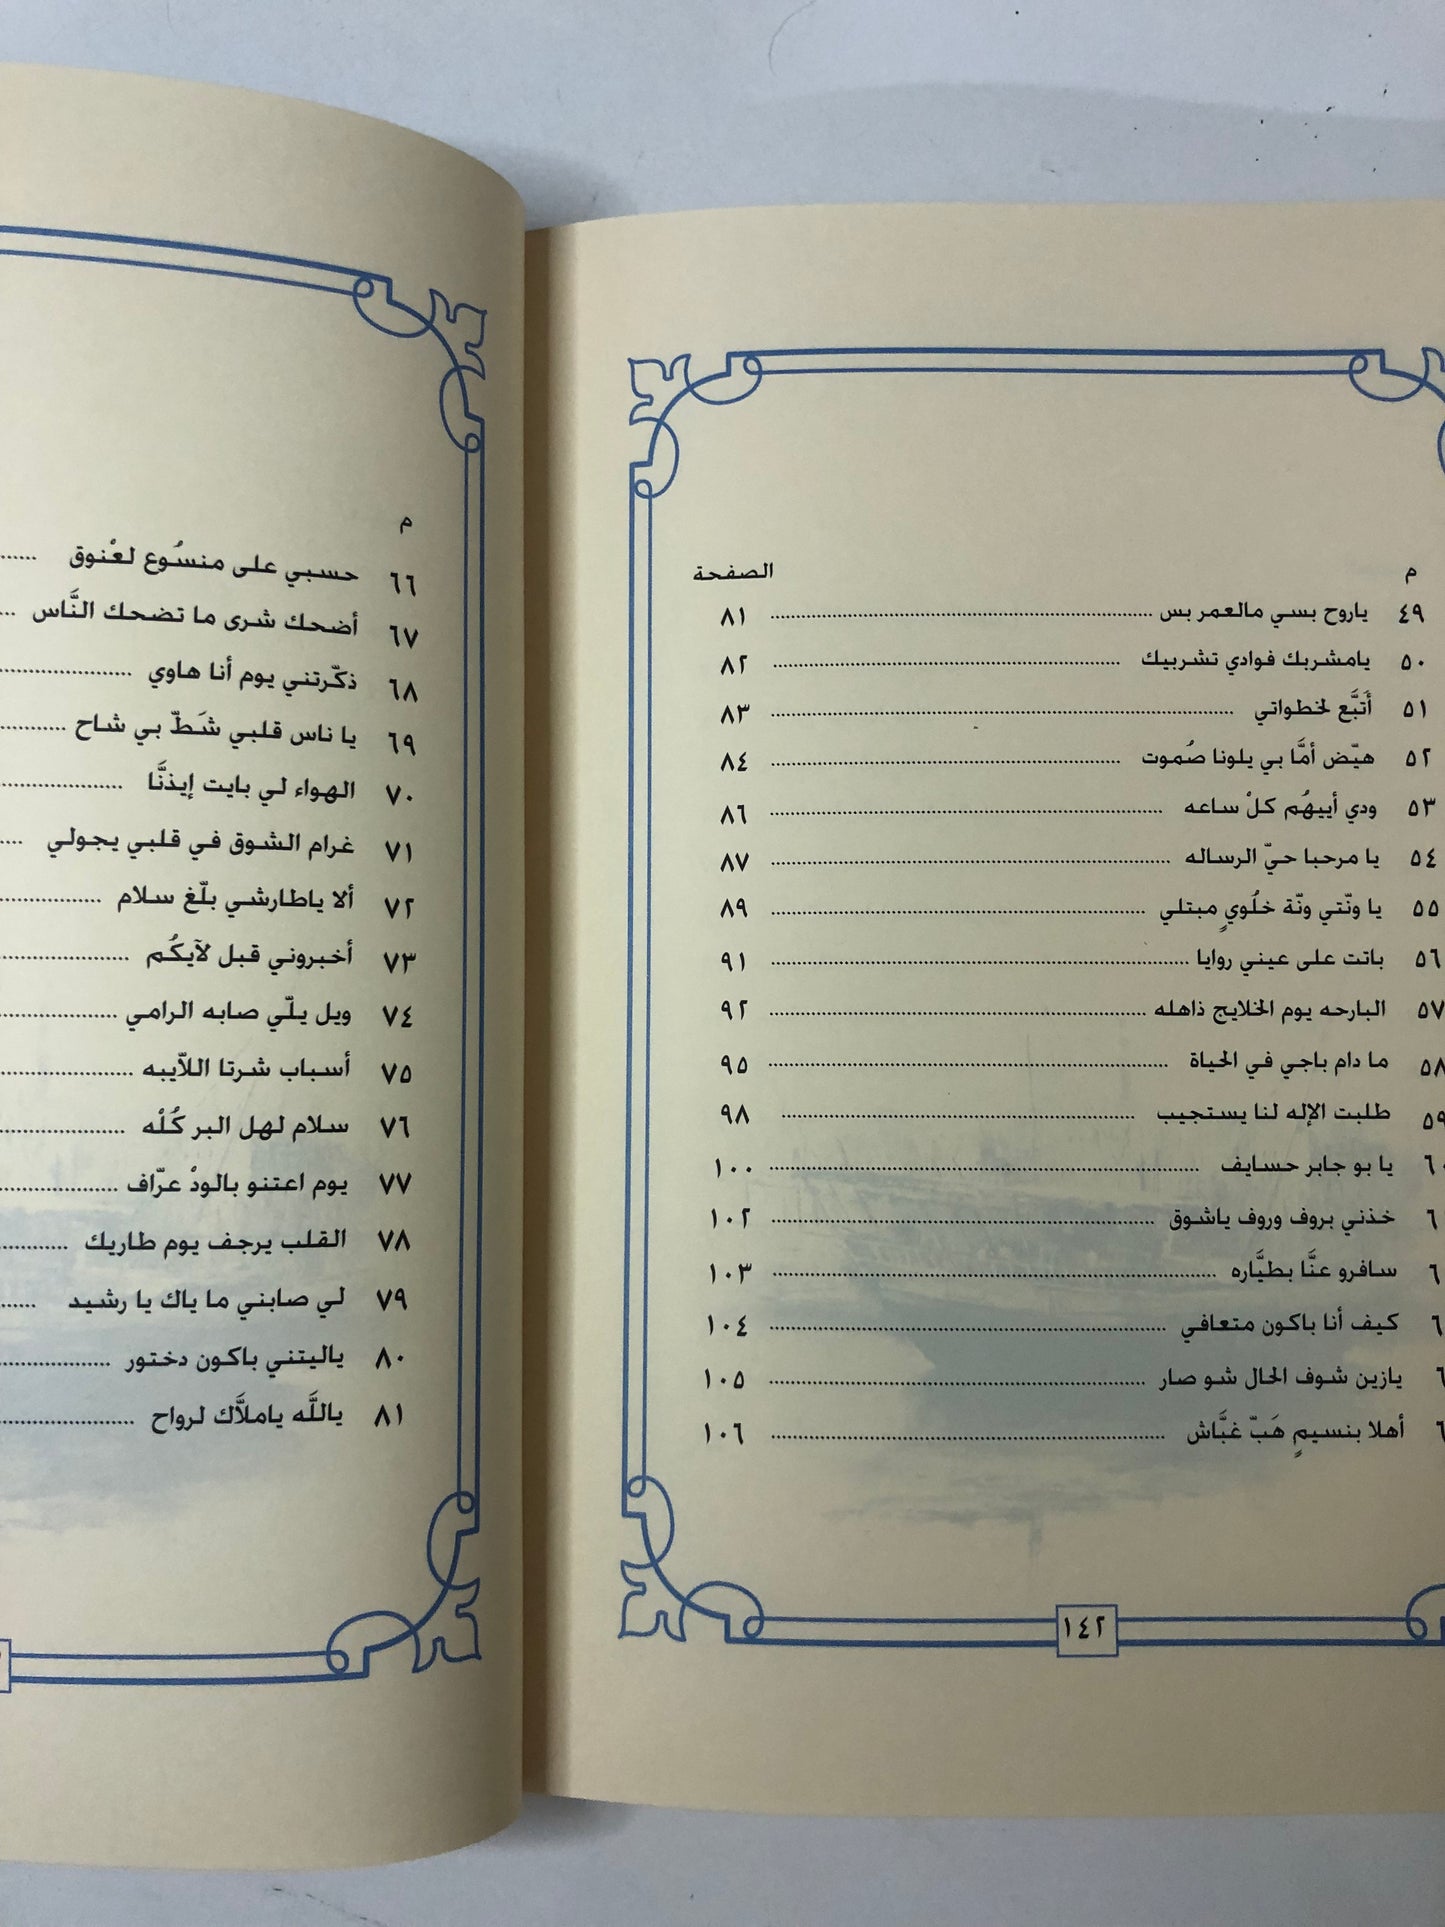 م الصفحة
٤٩ ياروح بسي مالعمر بس ٨١
٥٠ يامشربك فوادي تشربيك ٨٢
٥١ أَتبَّع لخطواتي ٨٣
٥٢ هيّض أمَّا بي يلونا صُموت ٨٤
٥٣ ودي أييهُم كلْ ساعه ٨٦
٥٤ يا مرحبا حيّ الرساله ٨٧
٥٥ يا ونّتي ونّة خلُويٍ مبتلي ٨٩
٥٦ باتت على عيني روايا ٩١
٥٧ البارحه يوم الخلايج ذاهله ٩٢
٥٨ ما دام باجي في الحياة ٩٥
٥٩ طلبت الإله لنا يستجيب ٩٨
٦٠ يا بو جابر حسايف ١٠٠
٦ خذني بروف وروف ياشوق ١٠٢
٦ سافرو عنَّا بطيَّاره ١٠٣
٦ كيف أنا باكون متعافي ١٠٤
٦ يازين شوف الحال شو صار ١٠٥
٦ أهلا بنسيمٍ هَبّ غبَّاش ١٠٦
١٤٢
م
٦٦ حسبي على منسُوع لعْنوق
٦٧ أضحك شرى ما تضحك النَّاس
٦٨ ذكّرتني يوم أنا هاوي
٦٩ يا ناس قلبي شَطّ بي شاح
٧٠ الهواء لي بايت إيذنَّا
٧١ غرام الشوق في قلبي يجولي
٧٢ ألا ياطارشي بلّغ سلام
٧٣ أخبروني قبل لآيكُم
٧٤ ويل يلّي صابه الرامي
٧٥ أسباب شرتا اللاّيبه
٧٦ سلام لهل البر كُلْه
٧٧ يوم اعتنو بالودْ عرّاف
٧٨ القلب يرجف يوم طاريك
٧٩ لي صابني ما ياك يا رشيد
٨٠ ياليتني باكون دختور
٨١ ياللَّه ياملاَّك لرواح